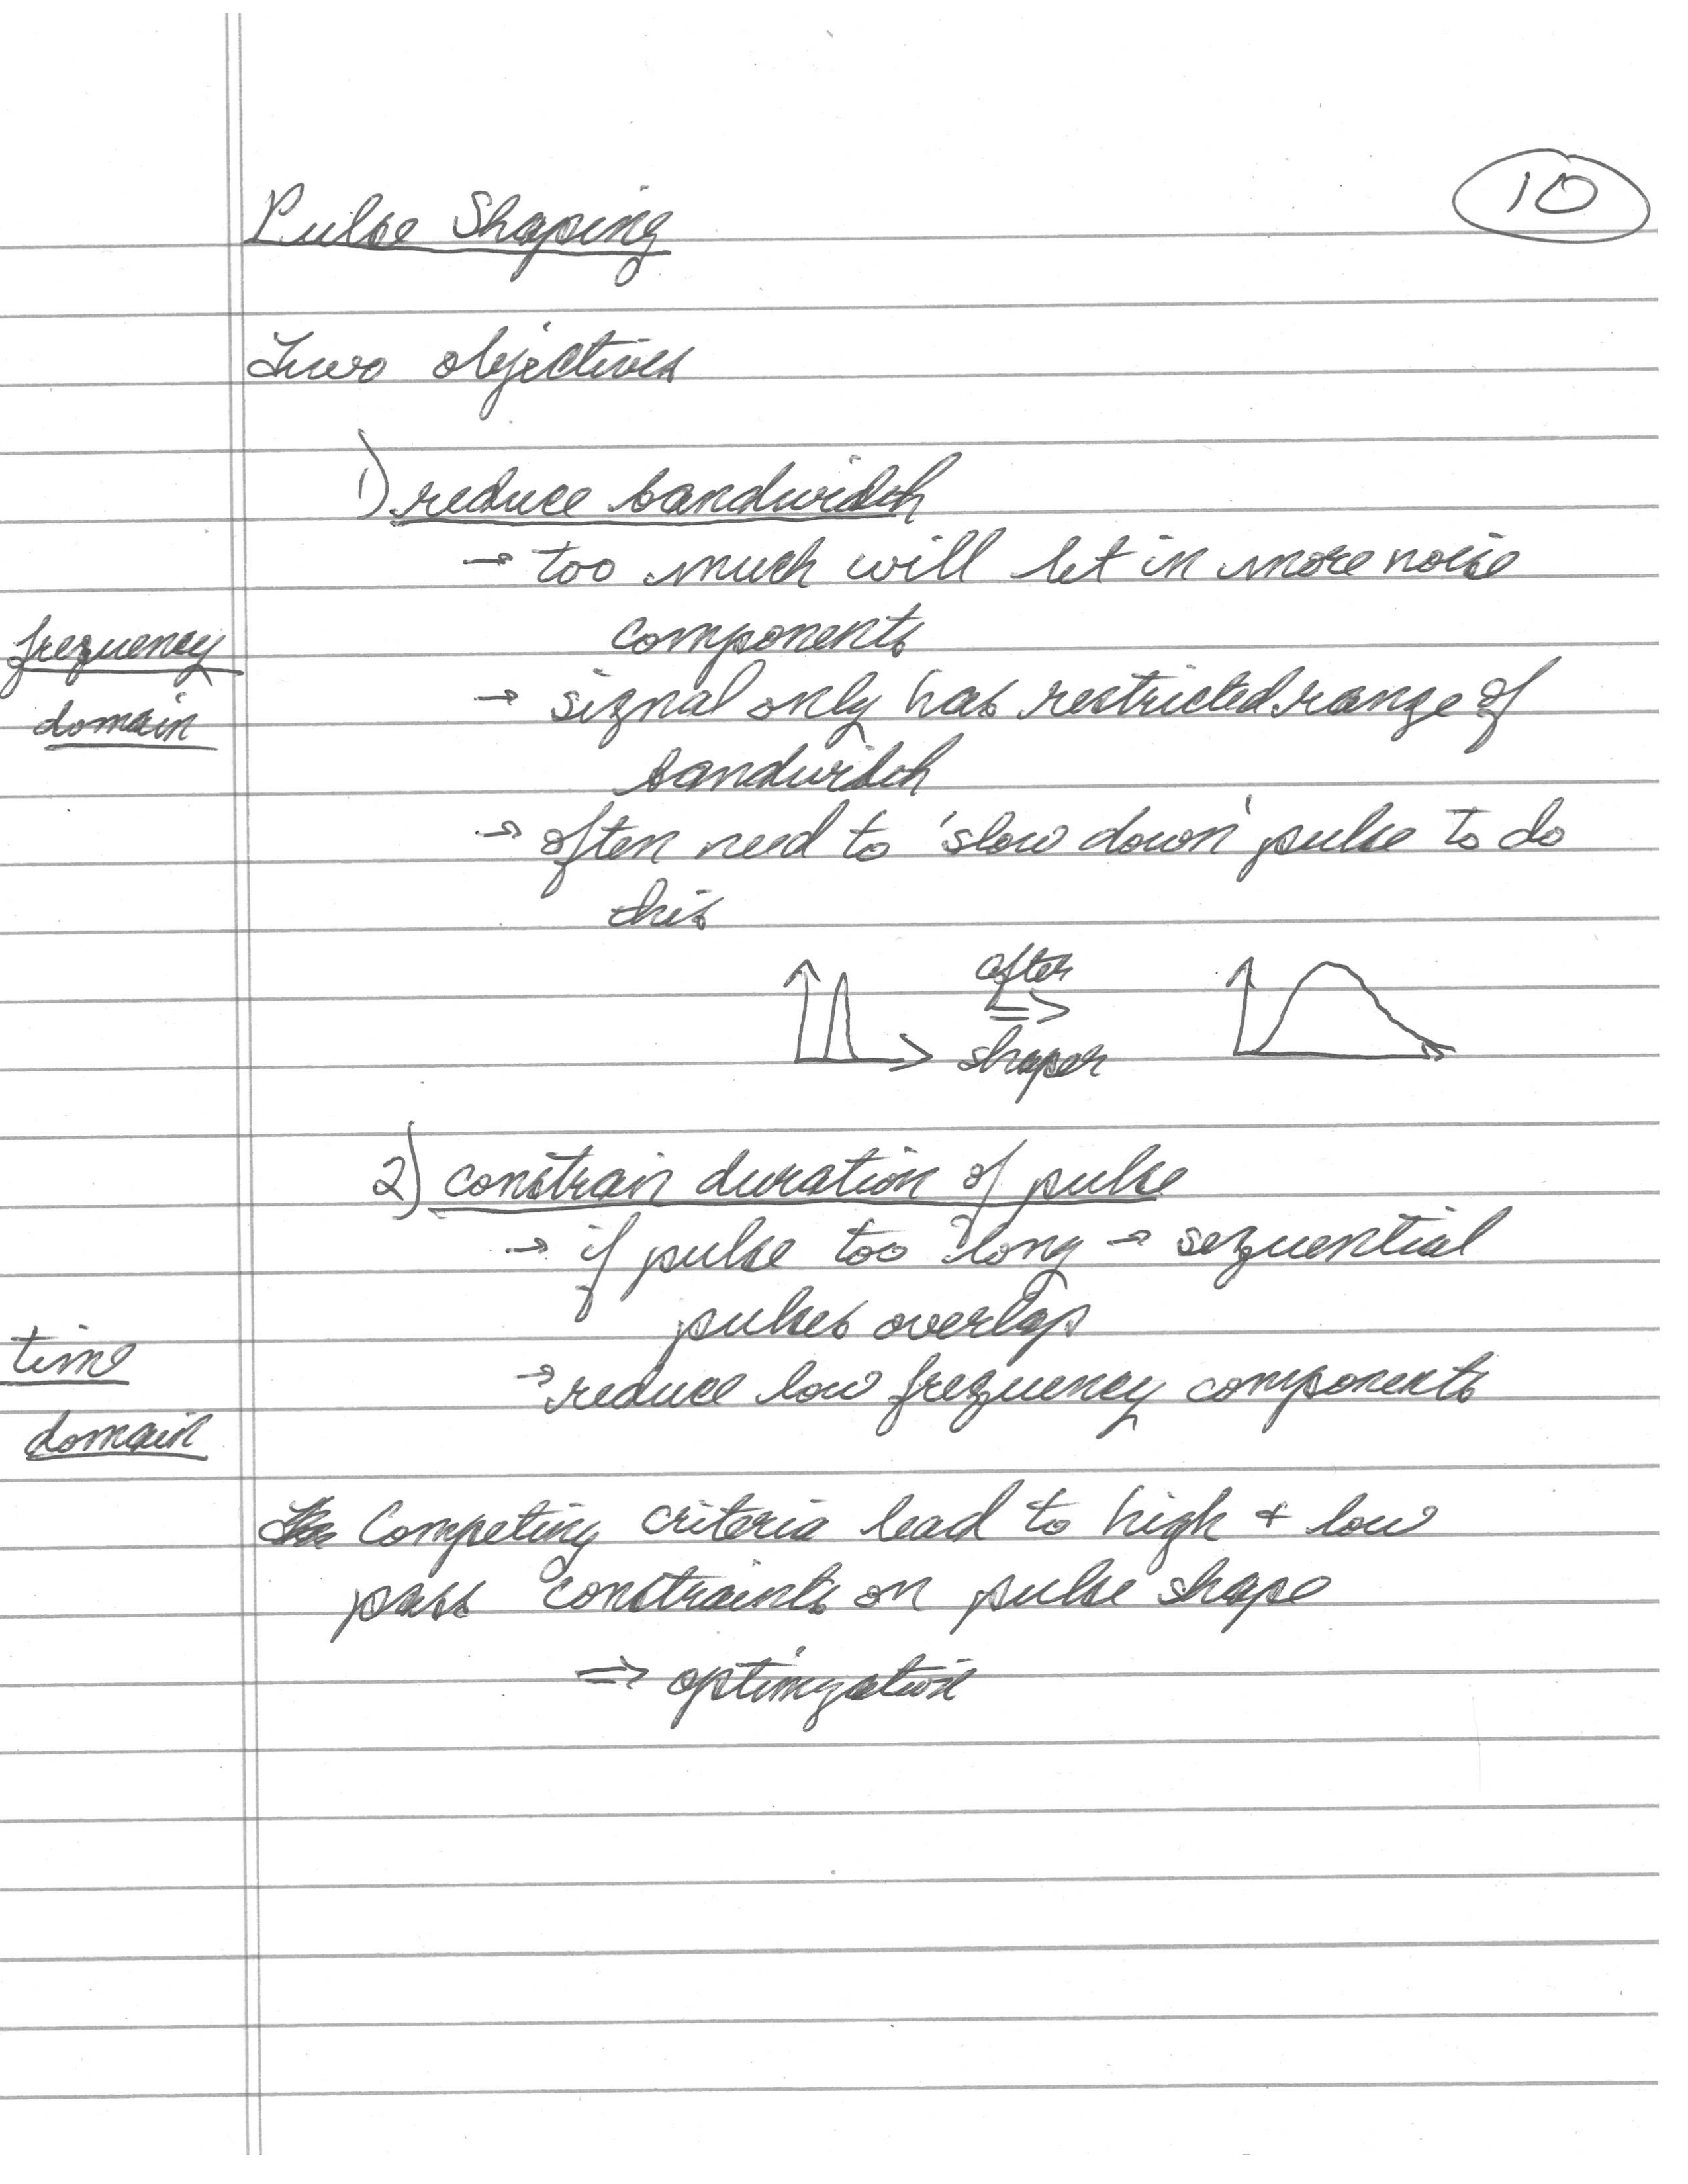 10
Pulse Shaping
Two objectives
1) reduce bandwidth
→ too much will let in more noise
components
frequency
→ signal only has restricted range of
domain
bandwidth
→ often need to 'slow down' pulse to do
this
after
⇒
shaper
2) constrain duration of pulse
→ if pulse too long → sequential
pulses overlap
time
→ reduce low frequency components
domain
Competing criteria lead to high + low
pass constraints on pulse shape
⇒ optimization